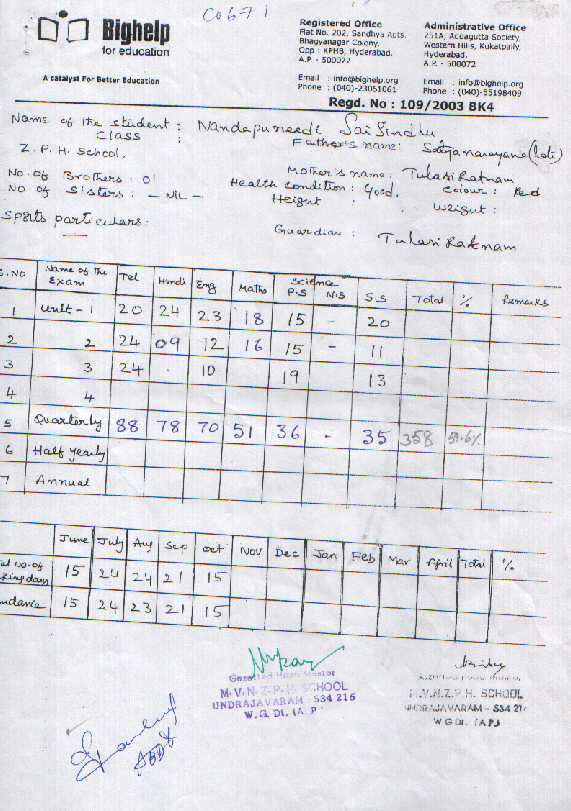 C0671
Bighelp
for education
A catalyst For Better Education
Registered Office
Flat No. 202, Sandhya Apts.
Bhagyanagar Colony,
Opp : KPHB, Hyderabad.
A.P - 500072
Email : info@bighelp.org
Phone : (040)-23051061
Administrative Office
251A, Addagutta Society,
Western Hills, Kukatpally,
Hyderabad.
A.P. - 500072
Email : info@bighelp.org
Phone : (040)-55198409
Regd. No : 109/2003 BK4
Name of the student : Nandapuneedi Sai Sindhu
Class :
Father's name: Satyanarayana (late)
Z. P. H. School.
Mother's name: Tulasi Ratnam
No. of Brothers : 01
Health Condition : Good. Colour : Red
No of Sisters : - NIL -
Height : Weight :
Sports particulars:
Guardian : Tulasi Ratnam
S.NO Name of the Exam Tel Hindi Eng Maths Science P.S N.S S.S Total % Remarks
1 Unit - 1 20 24 23 18 15 - 20
2 2 24 09 12 16 15 - 11
3 3 24 . 10 19 13
4 4
5 Quarterly 88 78 70 51 36 - 35 358 59.6%
6 Half Yearly
7 Annual
June July Aug Sep Oct Nov Dec Jan Feb Mar April Total %
tal no. of king days 15 24 24 21 15
ndance 15 24 23 21 15
M.V.N.Z.P.H. SCHOOL
UNDRAJAVARAM - 534 216
W.G. Dt. (A.P.)
M.V.N.Z.P.H. SCHOOL
UNDRAJAVARAM - 534 21
W.G. Dt. (A.P.)